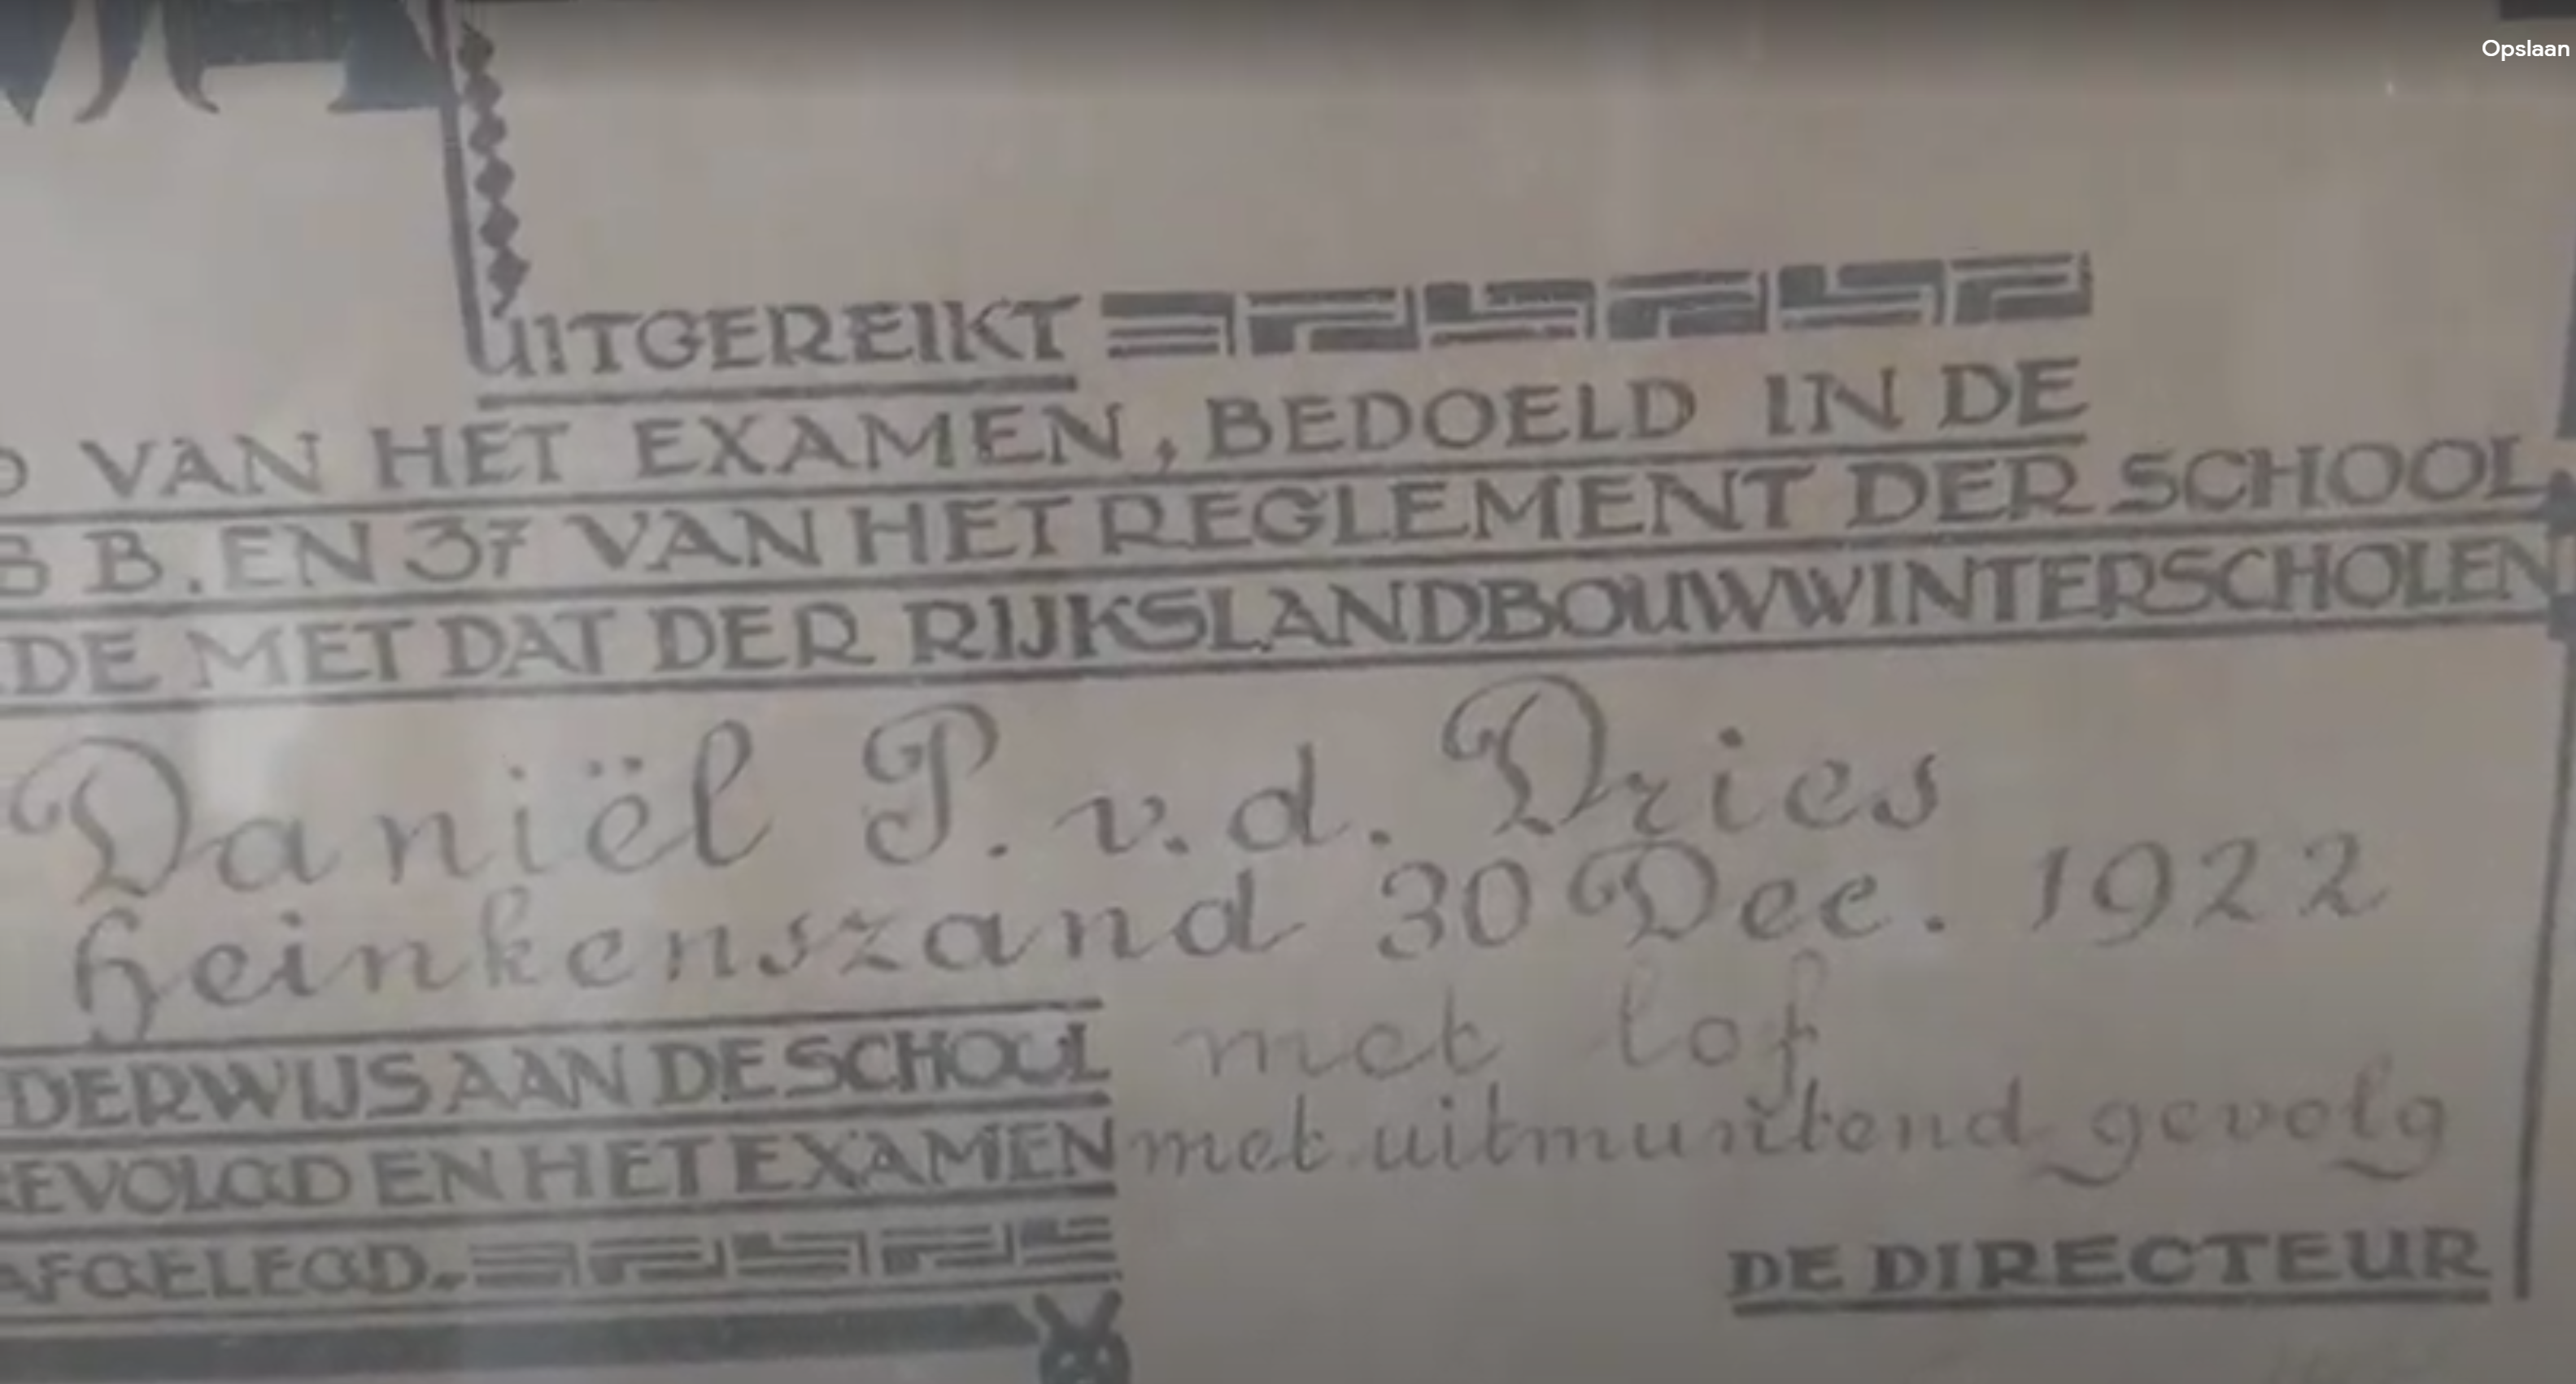 Opslaan
UITGEREIKT
VAN HET EXAMEN, BEDOELD IN DE
B. EN 37 VAN HET REGLEMENT DER SCHOOL,
DE MET DAT DER RIJKSLANDBOUWWINTERSCHOLEN
Daniël P. v. d. Dries
Heinkenszand 30 Dec. 1922
DERWIJS AAN DE SCHOOL met lof
EVOLGD EN HET EXAMEN met uitmuntend gevolg
AFGELEGD.
DE DIRECTEUR